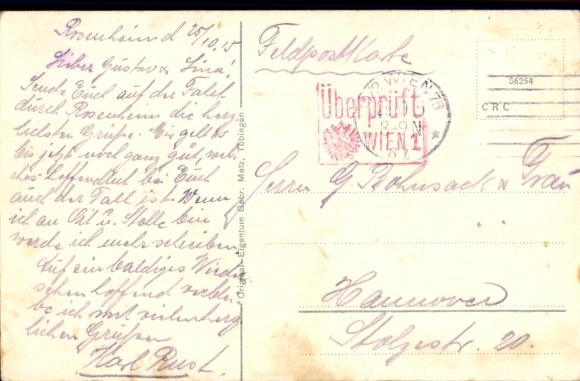 Rosenheim d 25/10.15
Lieber Gustav & Lina!
Sende Euch auf der Fahrt
durch Rosenheim die herz
lichsten Grüße. Mir geht es
bis jetzt noch ganz gut, wel-
ches hoffentlich bei Euch
auch der Fall ist. Wenn
ich an Ort u. Stelle bin
werde ich mehr schreiben.
Auf ein baldiges Wieder
sehen hoffend verblei
be ich mit herz
lichen Grüßen
Karl Rust.
Original-Eigentum Gebr. Metz, Tübingen
Feldpostkarte
WIEN 76
8-9N
Überprüft
WIEN 1
56254
C R C
Herrn G Bohnsack & Frau
Hannover
Stolzestr. 20.